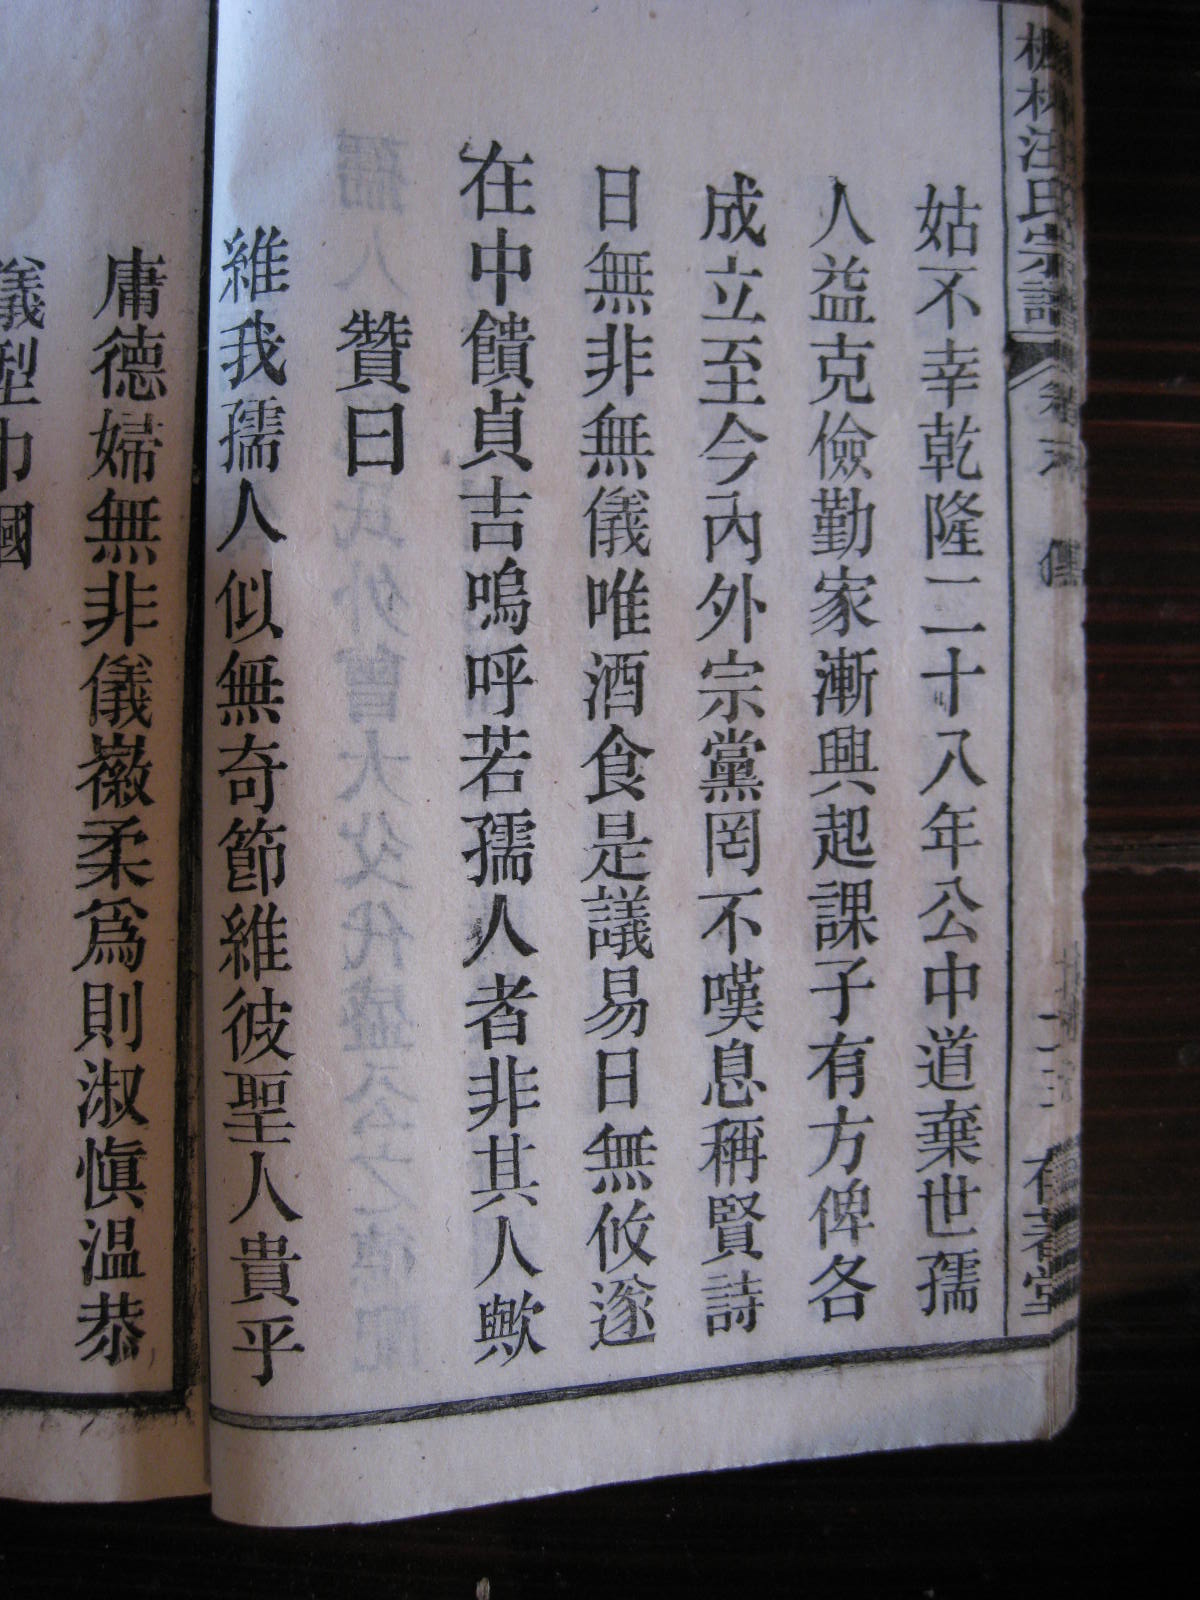 林汪氏宗譜 傳
姑不幸乾隆二十八年公中道棄世孺
人益克儉勤家漸興起課子有方俾各
成立至今內外宗黨罔不嘆息稱賢詩
日無非無儀唯酒食是議易日無攸遂
在中饋貞吉嗚呼若孺人者非其人歟
贊曰
維我孺人似無奇節維彼聖人貴乎
庸德婦無非儀徽柔為則淑慎溫恭
儀型巾幗